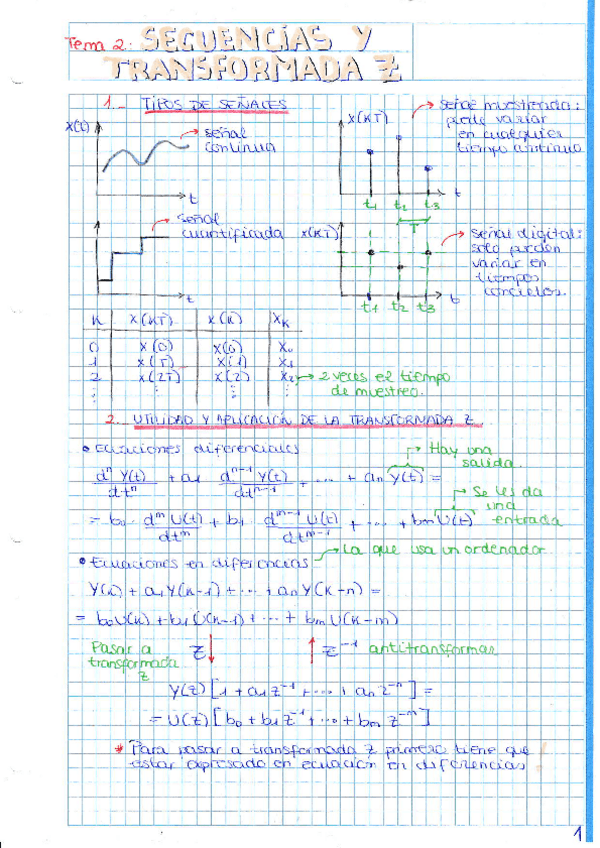 Tema 2. SECUENCIAS Y
TRANSFORMADA Z
1.- TIPOS DE SEÑALES
X(t)
señal
continua
t
X(KT)
señal muestreada:
puede variar
en cualquier
tiempo continuo
t1 t2 t3 t
señal
cuantificada
t
X(KT)
T
señal digital:
solo pueden
variar en
tiempos
concretos.
t1 t2 t3 t
K X(KT) X(K) XK
0 X(0) X(0) X0
1 X(T) X(1) X1
2 X(2T) X(2) X2 → 2 veces el tiempo
de muestreo.
2. UTILIDAD Y APLICACIÓN DE LA TRANSFORMADA Z
• Ecuaciones diferenciales
Hay una
salida.
d^n Y(t)/dt^n + a1 d^(n-1) Y(t)/dt^(n-1) + ... + an Y(t) =
Se les da
una
entrada
= b0 · d^m U(t)/dt^m + b1 · d^(m-1) U(t)/dt^(m-1) + ... + bm U(t)
• Ecuaciones en diferencias → La que usa un ordenador
Y(K) + a1 Y(K-1) + ... + an Y(K-n) =
= b0 U(K) + b1 U(K-1) + ... + bm U(K-m)
Pasar a
transformada
Z
Z ↓ ↑ Z^-1 antitransformar
Y(z) [1 + a1 z^-1 + ... + an z^-n] =
= U(z) [b0 + b1 z^-1 + ... + bm z^-m]
* Para pasar a transformada Z primero tiene que
estar expresado en ecuación en diferencias!
1